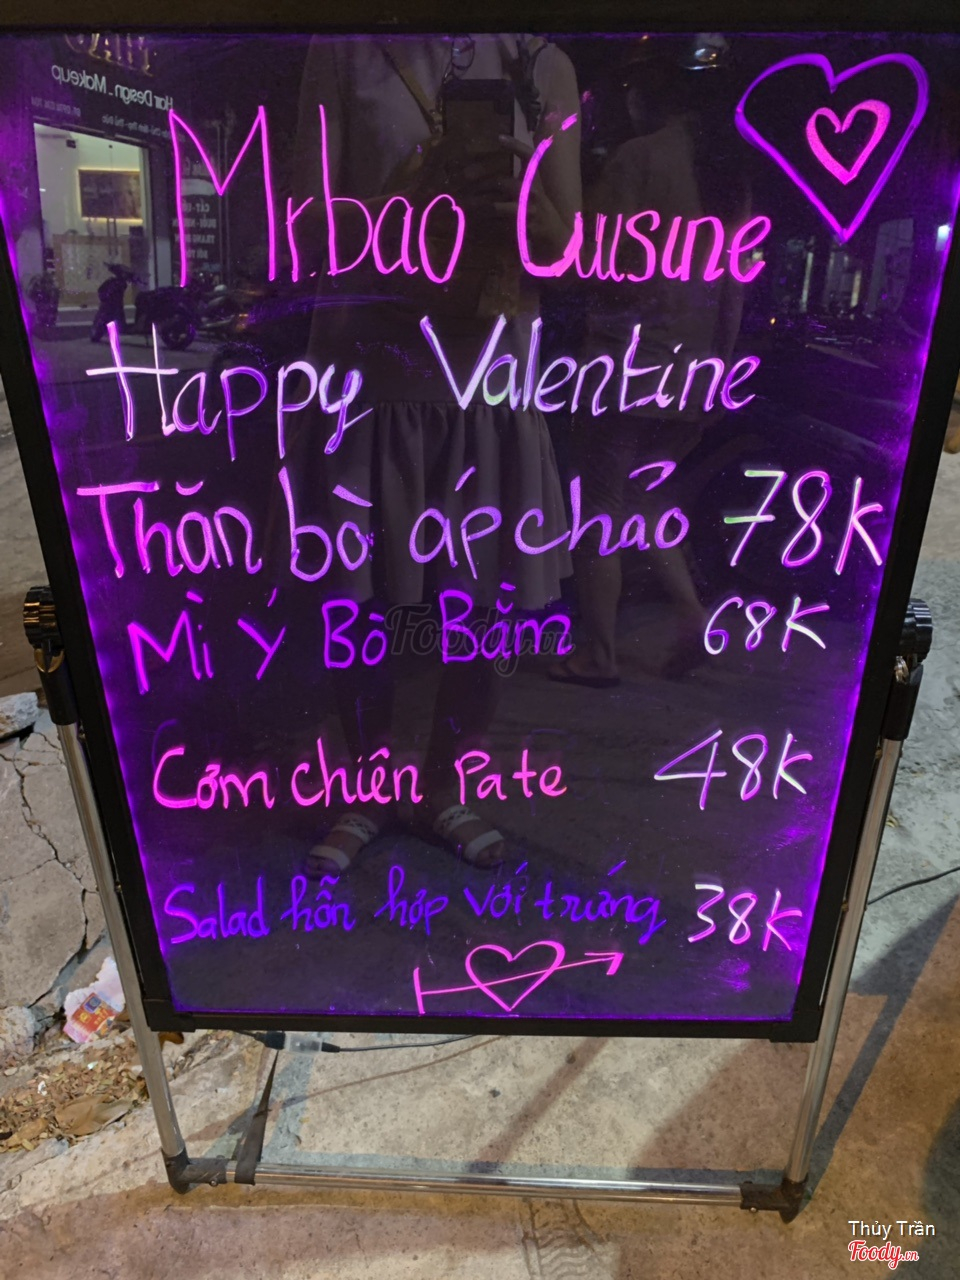 Hair Design _ Makeup
Mr.bao Cuisine
Happy Valentine
Thăn bò áp chảo 78K
Mì Ý Bò Bằm 68K
Cơm chiên Pate 48K
Salad hỗn hợp với trứng 38K
Foody.vn
Thủy Trần
Foody.vn